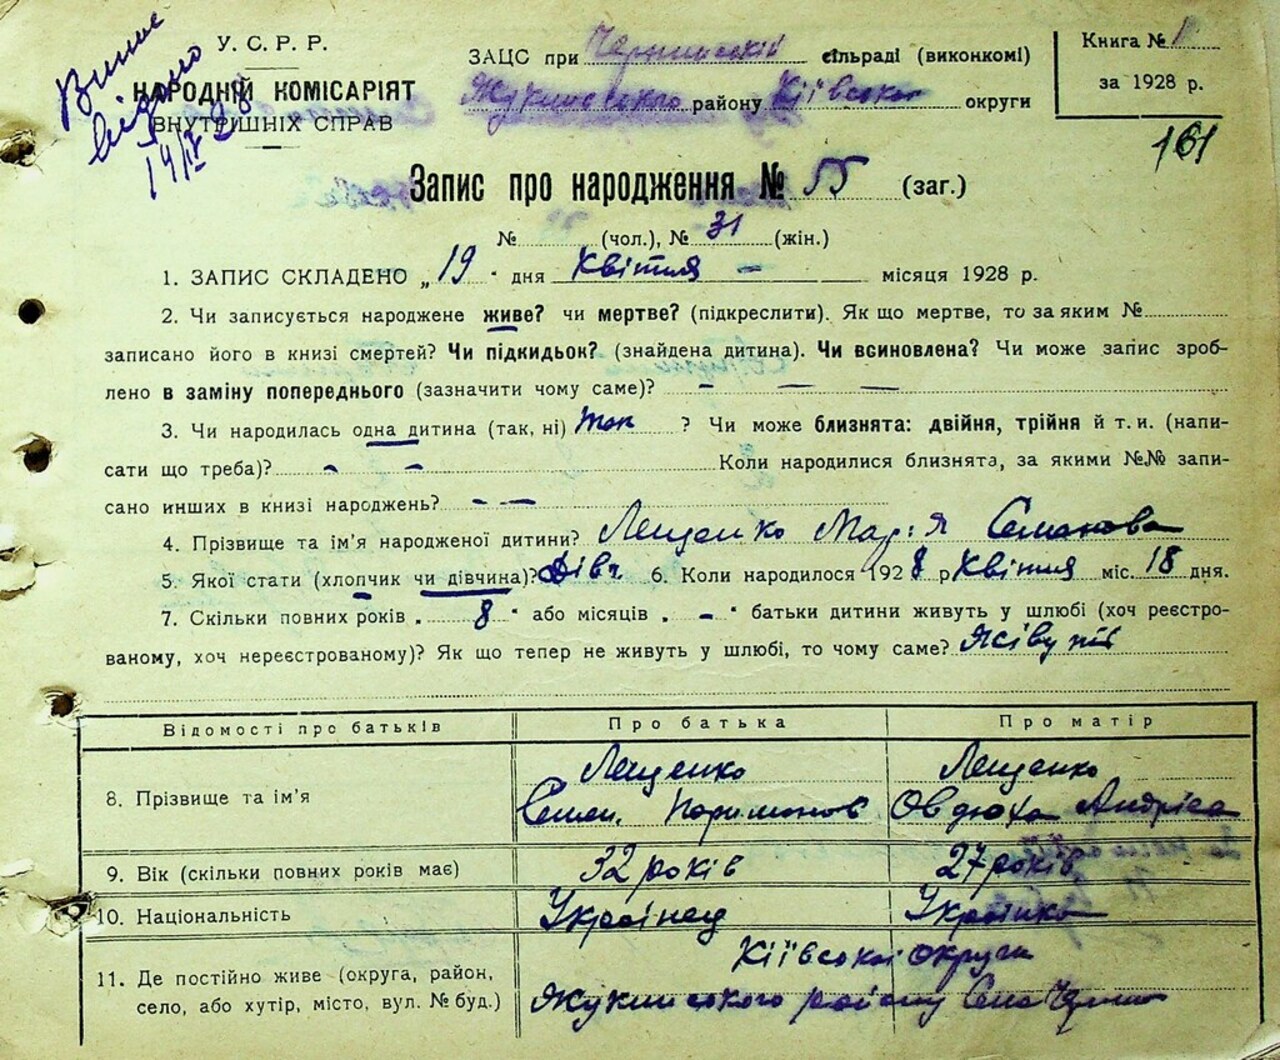 Виписк видано 19/IV 28
У. С. Р. Р.
НАРОДНІЙ КОМІСАРІЯТ
ВНУТРІШНІХ СПРАВ
ЗАЦС при Чернинській сільраді (виконкомі)
Жукинського району Київської округи
Книга № 1
за 1928 р.
161
Запис про народження № 55 (заг.)
№ (чол.), № 31 (жін.)
1. ЗАПИС СКЛАДЕНО „ 19 " дня Квітня - місяця 1928 р.
2. Чи записується народжене живе? чи мертве? (підкреслити). Як що мертве, то за яким №
записано його в книзі смертей? Чи підкидьок? (знайдена дитина). Чи всиновлена? Чи може запис зроб-
лено в заміну попереднього (зазначити чому саме)? - — —
3. Чи народилась одна дитина (так, ні) Так ? Чи може близнята: двійня, трійня й т. и. (напи-
сати що треба)? - - Коли народилися близнята, за якими №№ запи-
сано инших в книзі народжень? - —
4. Прізвище та ім'я народженої дитини? Лещенко Марія Семенова
5. Якої стати (хлопчик чи дівчина)? Дівч. 6. Коли народилося 1928 р Квітня міс. 18 дня.
7. Скільки повних років „ 8 " або місяців „ - " батьки дитини живуть у шлюбі (хоч реєстро-
ваному, хоч нереєстрованому)? Як що тепер не живуть у шлюбі, то чому саме?
Відомості про батьків Про батька Про матір
8. Прізвище та ім'я Лещенко Лещенко
Семен Паримонов Овдюха Андрієва
9. Вік (скільки повних років має) 32 років 27 років
10. Національність Українец Українка
11. Де постійно живе (округа, район, Київської округи
село, або хутір, місто, вул. № буд.) Жукинського району Села